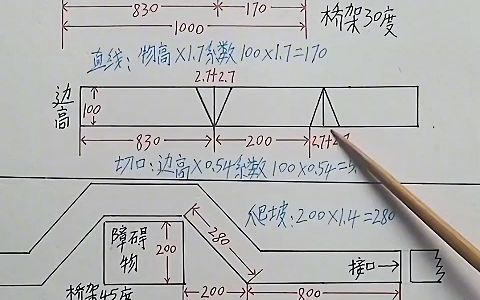 830
170
1000
桥架30度
直线：物高×1.7系数100×1.7=170
2.7+2.7
边高
100
830
200
2.7+2.7
切口：边高×0.54系数100×0.54=5
爬坡：200×1.4=280
障碍物
200
280
接口
桥架45度
200
800